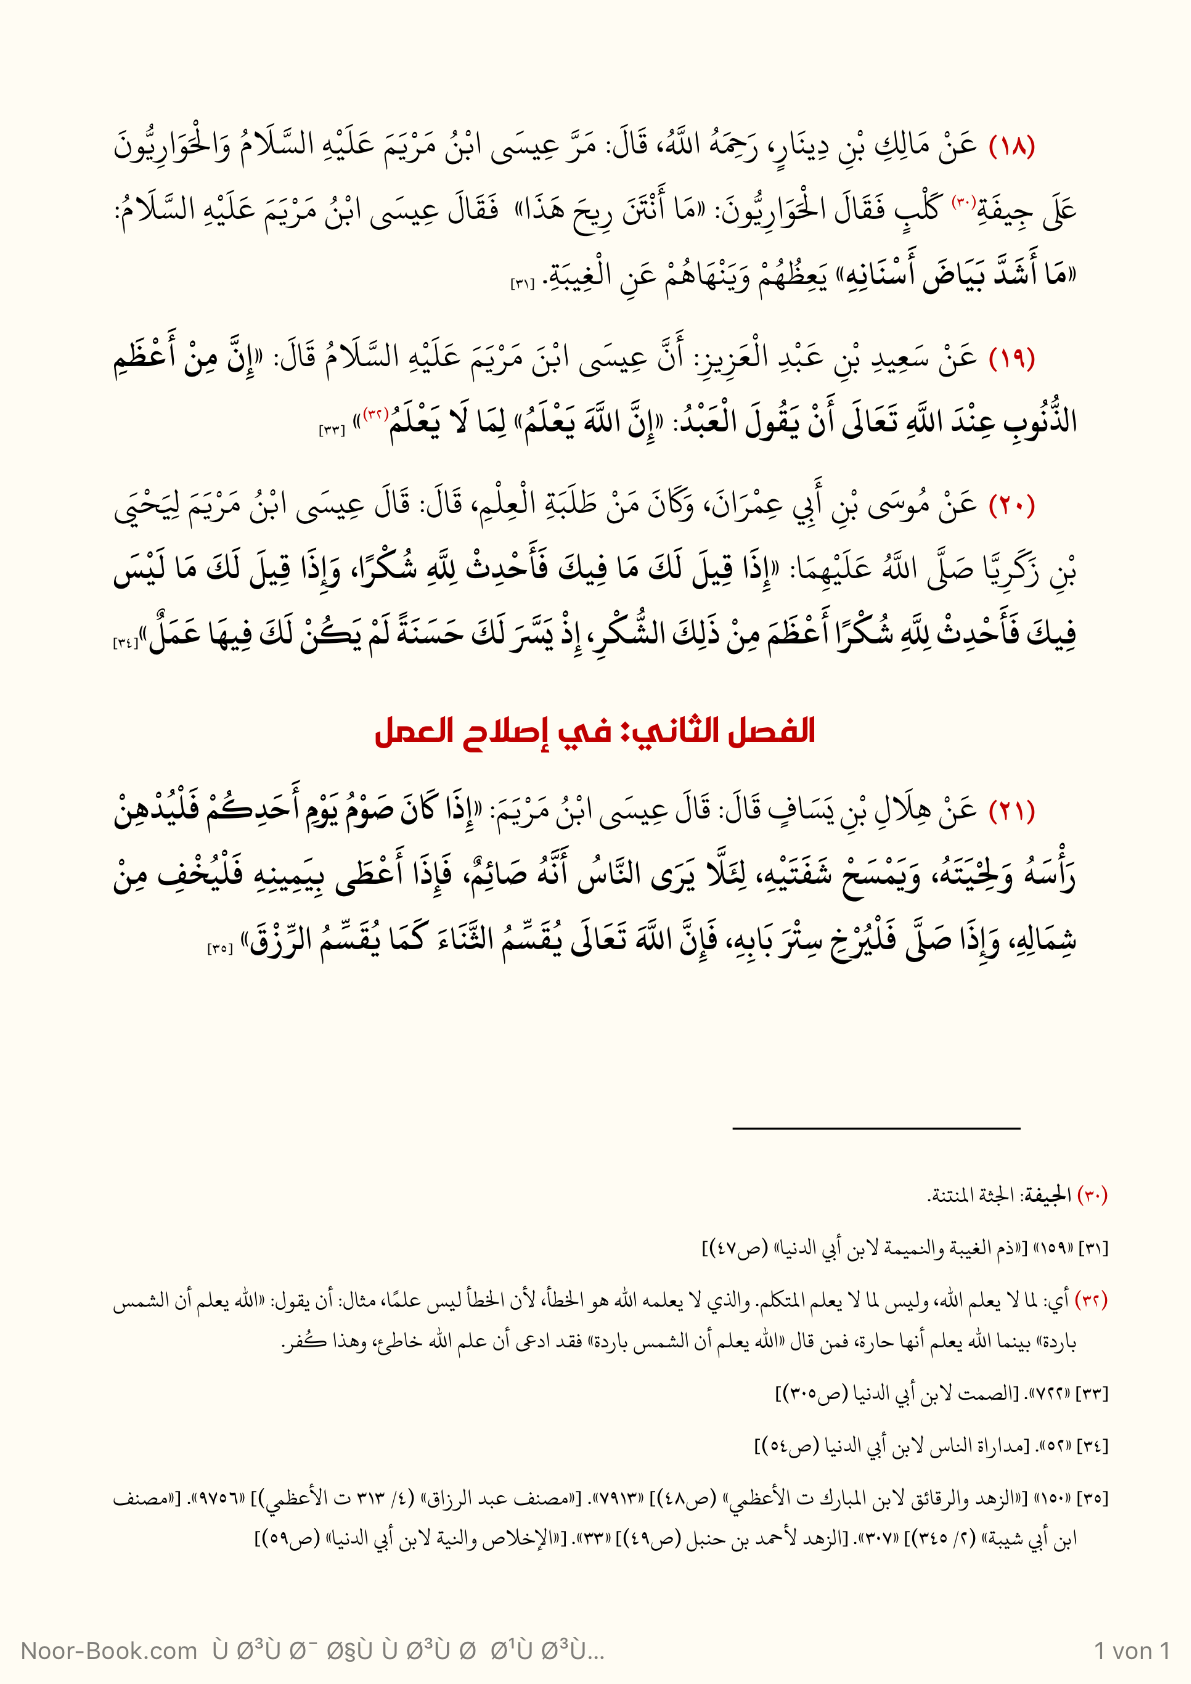 (١٨) عَنْ مَالِكِ بْنِ دِينَارٍ، رَحِمَهُ اللَّهُ، قَالَ: مَرَّ عِيسَى ابْنُ مَرْيَمَ عَلَيْهِ السَّلَامُ وَالْحَوَارِيُّونَ
عَلَى جِيفَةِ(٣٠) كَلْبٍ فَقَالَ الْحَوَارِيُّونَ: «مَا أَنْتَنَ رِيحَ هَذَا» فَقَالَ عِيسَى ابْنُ مَرْيَمَ عَلَيْهِ السَّلَامُ:
«مَا أَشَدَّ بَيَاضَ أَسْنَانِهِ» يَعِظُهُمْ وَيَنْهَاهُمْ عَنِ الْغِيبَةِ. [٣١]
(١٩) عَنْ سَعِيدِ بْنِ عَبْدِ الْعَزِيزِ: أَنَّ عِيسَى ابْنَ مَرْيَمَ عَلَيْهِ السَّلَامُ قَالَ: «إِنَّ مِنْ أَعْظَمِ
الذُّنُوبِ عِنْدَ اللَّهِ تَعَالَى أَنْ يَقُولَ الْعَبْدُ: «إِنَّ اللَّهَ يَعْلَمُ» لِمَا لَا يَعْلَمُ(٣٢)» [٣٣]
(٢٠) عَنْ مُوسَى بْنِ أَبِي عِمْرَانَ، وَكَانَ مَنْ طَلَبَةِ الْعِلْمِ، قَالَ: قَالَ عِيسَى ابْنُ مَرْيَمَ لِيَحْيَى
بْنِ زَكَرِيَّا صَلَّى اللَّهُ عَلَيْهِمَا: «إِذَا قِيلَ لَكَ مَا فِيكَ فَأَحْدِثْ لِلَّهِ شُكْرًا، وَإِذَا قِيلَ لَكَ مَا لَيْسَ
فِيكَ فَأَحْدِثْ لِلَّهِ شُكْرًا أَعْظَمَ مِنْ ذَلِكَ الشُّكْرِ، إِذْ يَسَّرَ لَكَ حَسَنَةً لَمْ يَكُنْ لَكَ فِيهَا عَمَلٌ»[٣٤]
الفصل الثاني: في إصلاح العمل
(٢١) عَنْ هِلَالِ بْنِ يَسَافٍ قَالَ: قَالَ عِيسَى ابْنُ مَرْيَمَ: «إِذَا كَانَ صَوْمُ يَوْمِ أَحَدِكُمْ فَلْيُدْهِنْ
رَأْسَهُ وَلِحْيَتَهُ، وَيَمْسَحْ شَفَتَيْهِ، لِئَلَّا يَرَى النَّاسُ أَنَّهُ صَائِمٌ، فَإِذَا أَعْطَى بِيَمِينِهِ فَلْيُخْفِ مِنْ
شِمَالِهِ، وَإِذَا صَلَّى فَلْيُرْخِ سِتْرَ بَابِهِ، فَإِنَّ اللَّهَ تَعَالَى يُقَسِّمُ الثَّنَاءَ كَمَا يُقَسِّمُ الرِّزْقَ» [٣٥]
(٣٠) الجيفة: الجثة المنتنة.
[٣١] «١٥٩» [«ذم الغيبة والنميمة لابن أبي الدنيا» (ص٤٧)]
(٣٢) أي: لما لا يعلم الله، وليس لما لا يعلم المتكلم. والذي لا يعلمه الله هو الخطأ، لأن الخطأ ليس علمًا، مثال: أن يقول: «الله يعلم أن الشمس
باردة» بينما الله يعلم أنها حارة، فمن قال «الله يعلم أن الشمس باردة» فقد ادعى أن علم الله خاطئ، وهذا كُفر.
[٣٣] «٧٢٢». [الصمت لابن أبي الدنيا (ص٣٠٥)]
[٣٤] «٥٢». [مداراة الناس لابن أبي الدنيا (ص٥٤)]
[٣٥] «١٥٠» [«الزهد والرقائق لابن المبارك ت الأعظمي» (ص٤٨)] «٧٩١٣». [«مصنف عبد الرزاق» (٤/ ٣١٣ ت الأعظمي)] «٩٧٥٦». [«مصنف
ابن أبي شيبة» (٢/ ٣٤٥)] «٣٠٧». [الزهد لأحمد بن حنبل (ص٤٩)] «٣٣». [«الإخلاص والنية لابن أبي الدنيا» (ص٥٩)]
Noor-Book.com Ù Ø³Ù Ø¯ Ø§Ù Ù Ø³Ù Ø Ø¹Ù Ø³Ù... 1 von 1